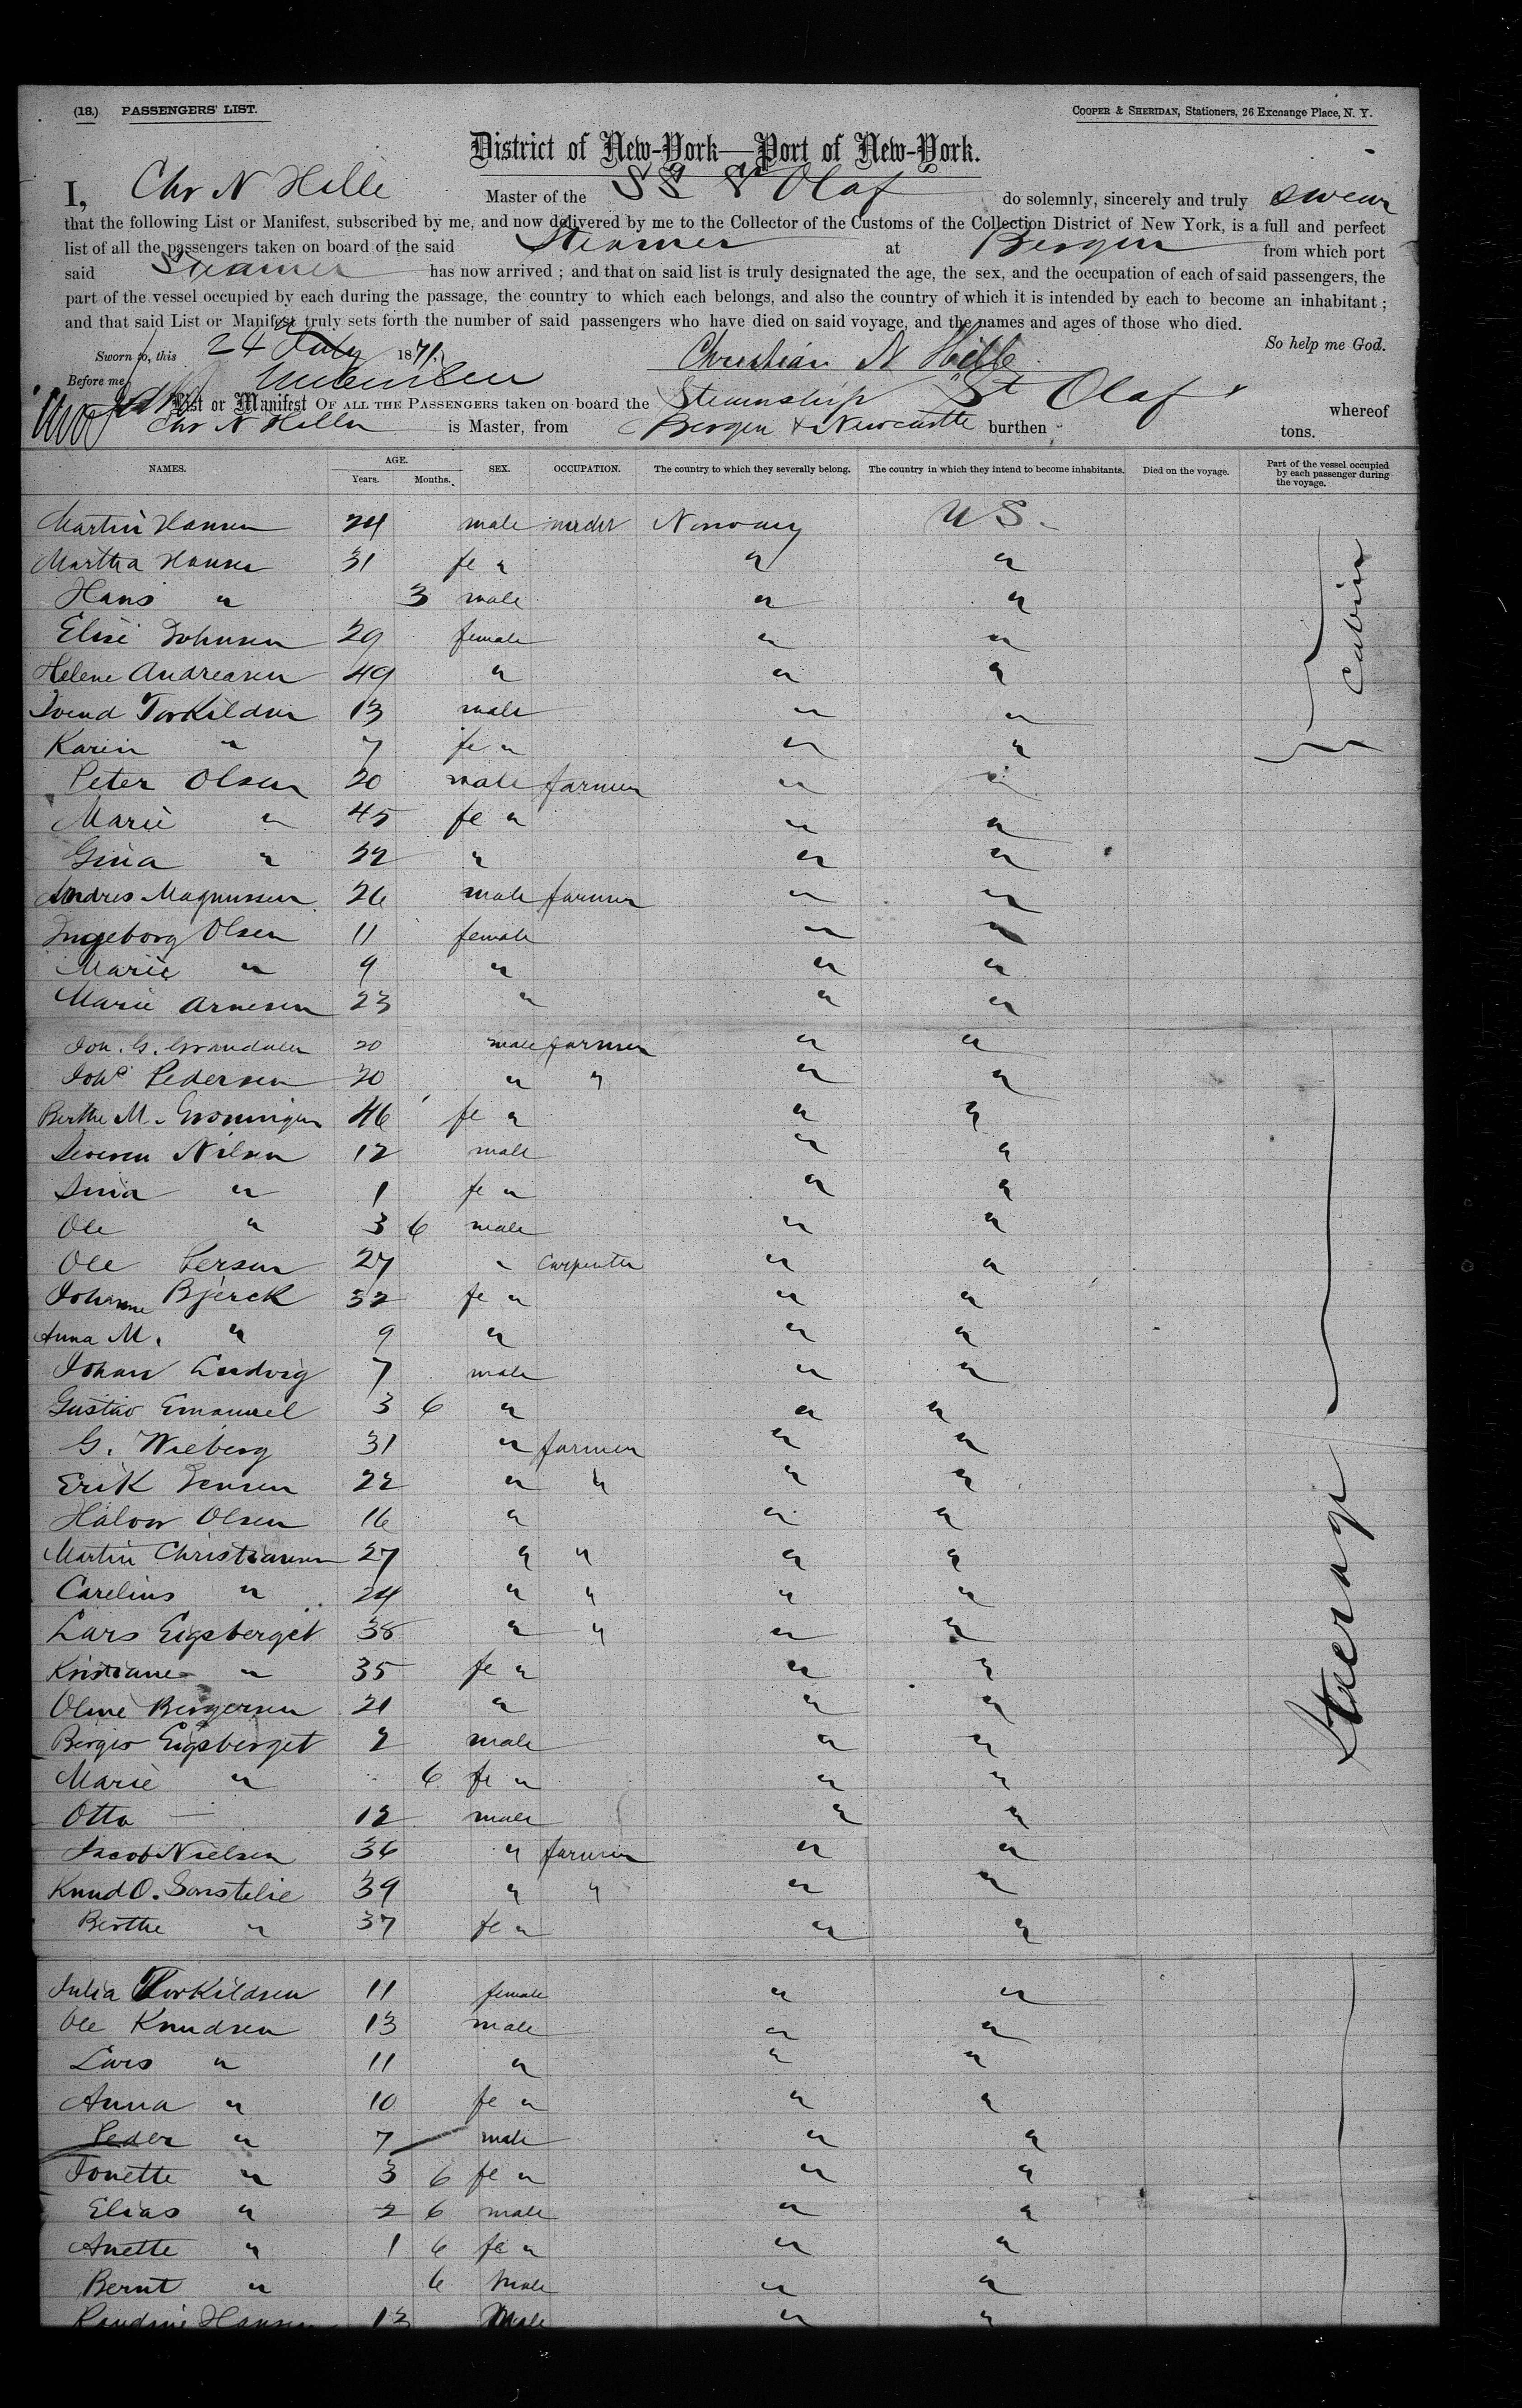 (18.) PASSENGERS' LIST.
COOPER & SHERIDAN, Stationers, 26 Exchange Place, N. Y.
District of New-York—Port of New-York.
I, Chr N Hille Master of the SS St Olaf do solemnly, sincerely and truly swear
that the following List or Manifest, subscribed by me, and now delivered by me to the Collector of the Customs of the Collection District of New York, is a full and perfect
list of all the passengers taken on board of the said Steamer at Bergen from which port
said Steamer has now arrived ; and that on said list is truly designated the age, the sex, and the occupation of each of said passengers, the
part of the vessel occupied by each during the passage, the country to which each belongs, and also the country of which it is intended by each to become an inhabitant ;
and that said List or Manifest truly sets forth the number of said passengers who have died on said voyage, and the names and ages of those who died.
So help me God.
Sworn to, this 24 July 1871
Christian N Hille
Before me
List or Manifest OF ALL THE PASSENGERS taken on board the Steamship St Olaf whereof
Chr N Hille is Master, from Bergen & Newcastle burthen tons.
NAMES. AGE. Years. Months. SEX. OCCUPATION. The country to which they severally belong. The country in which they intend to become inhabitants. Died on the voyage. Part of the vessel occupied by each passenger during the voyage.
Martin Hansen 24 male Norway U S.
Martha Hansen 31 fe " " "
Hans " 3 male " "
Elise Johnsen 29 female " "
Helene Andreasen 49 " " "
Svend Torkildsen 13 male " "
Karin " 7 fe " " "
Cabin
Peter Olsen 20 male farmer " "
Marie " 45 fe " " "
Gina " 22 " " "
Andres Magnussen 26 male farmer " "
Ingeborg Olsen 11 female " "
Marie " 9 " " "
Marie Arnesen 23 " " "
Joh. G. 20 male farmer " "
Johs Pedersen 20 " " " "
Berthe M. Groningen 46 fe " " "
Nilsen 12 male " "
" 1 fe " " "
Ole " 3 6 male " "
Ole Persen 27 " Carpenter " "
Johanne Bjerck 32 fe " " "
Anna M. " 9 " " "
Johan Ludvig 7 male " "
Gustav Emanuel 3 6 " " "
G. Wieberg 31 " farmer " "
Erik Jensen 22 " " " "
Halvor Olsen 16 " " "
Martin Christiansen 27 " " " "
Carelius " 24 " " " "
Lars Eigsberget 38 " " " "
Kristiane " 35 fe " " "
Oline Bergersen 21 " " "
Birger Eigsberget 2 male " "
Marie " 6 fe " " "
Otto — 12 male " "
Jacob Nielsen 36 " farmer " "
Knud O. Sonstelie 39 " " " "
Berthe " 37 fe " " "
Steerage
Julia Torkildsen 11 female " "
Ole Knudsen 13 male " "
Lars " 11 " " "
Anna " 10 fe " " "
Peder " 7 male " "
Jonette " 3 6 fe " " "
Elias " 2 6 male " "
Anette " 1 6 fe " " "
Bernt " 6 Male " "
Hansen 13 Male " "